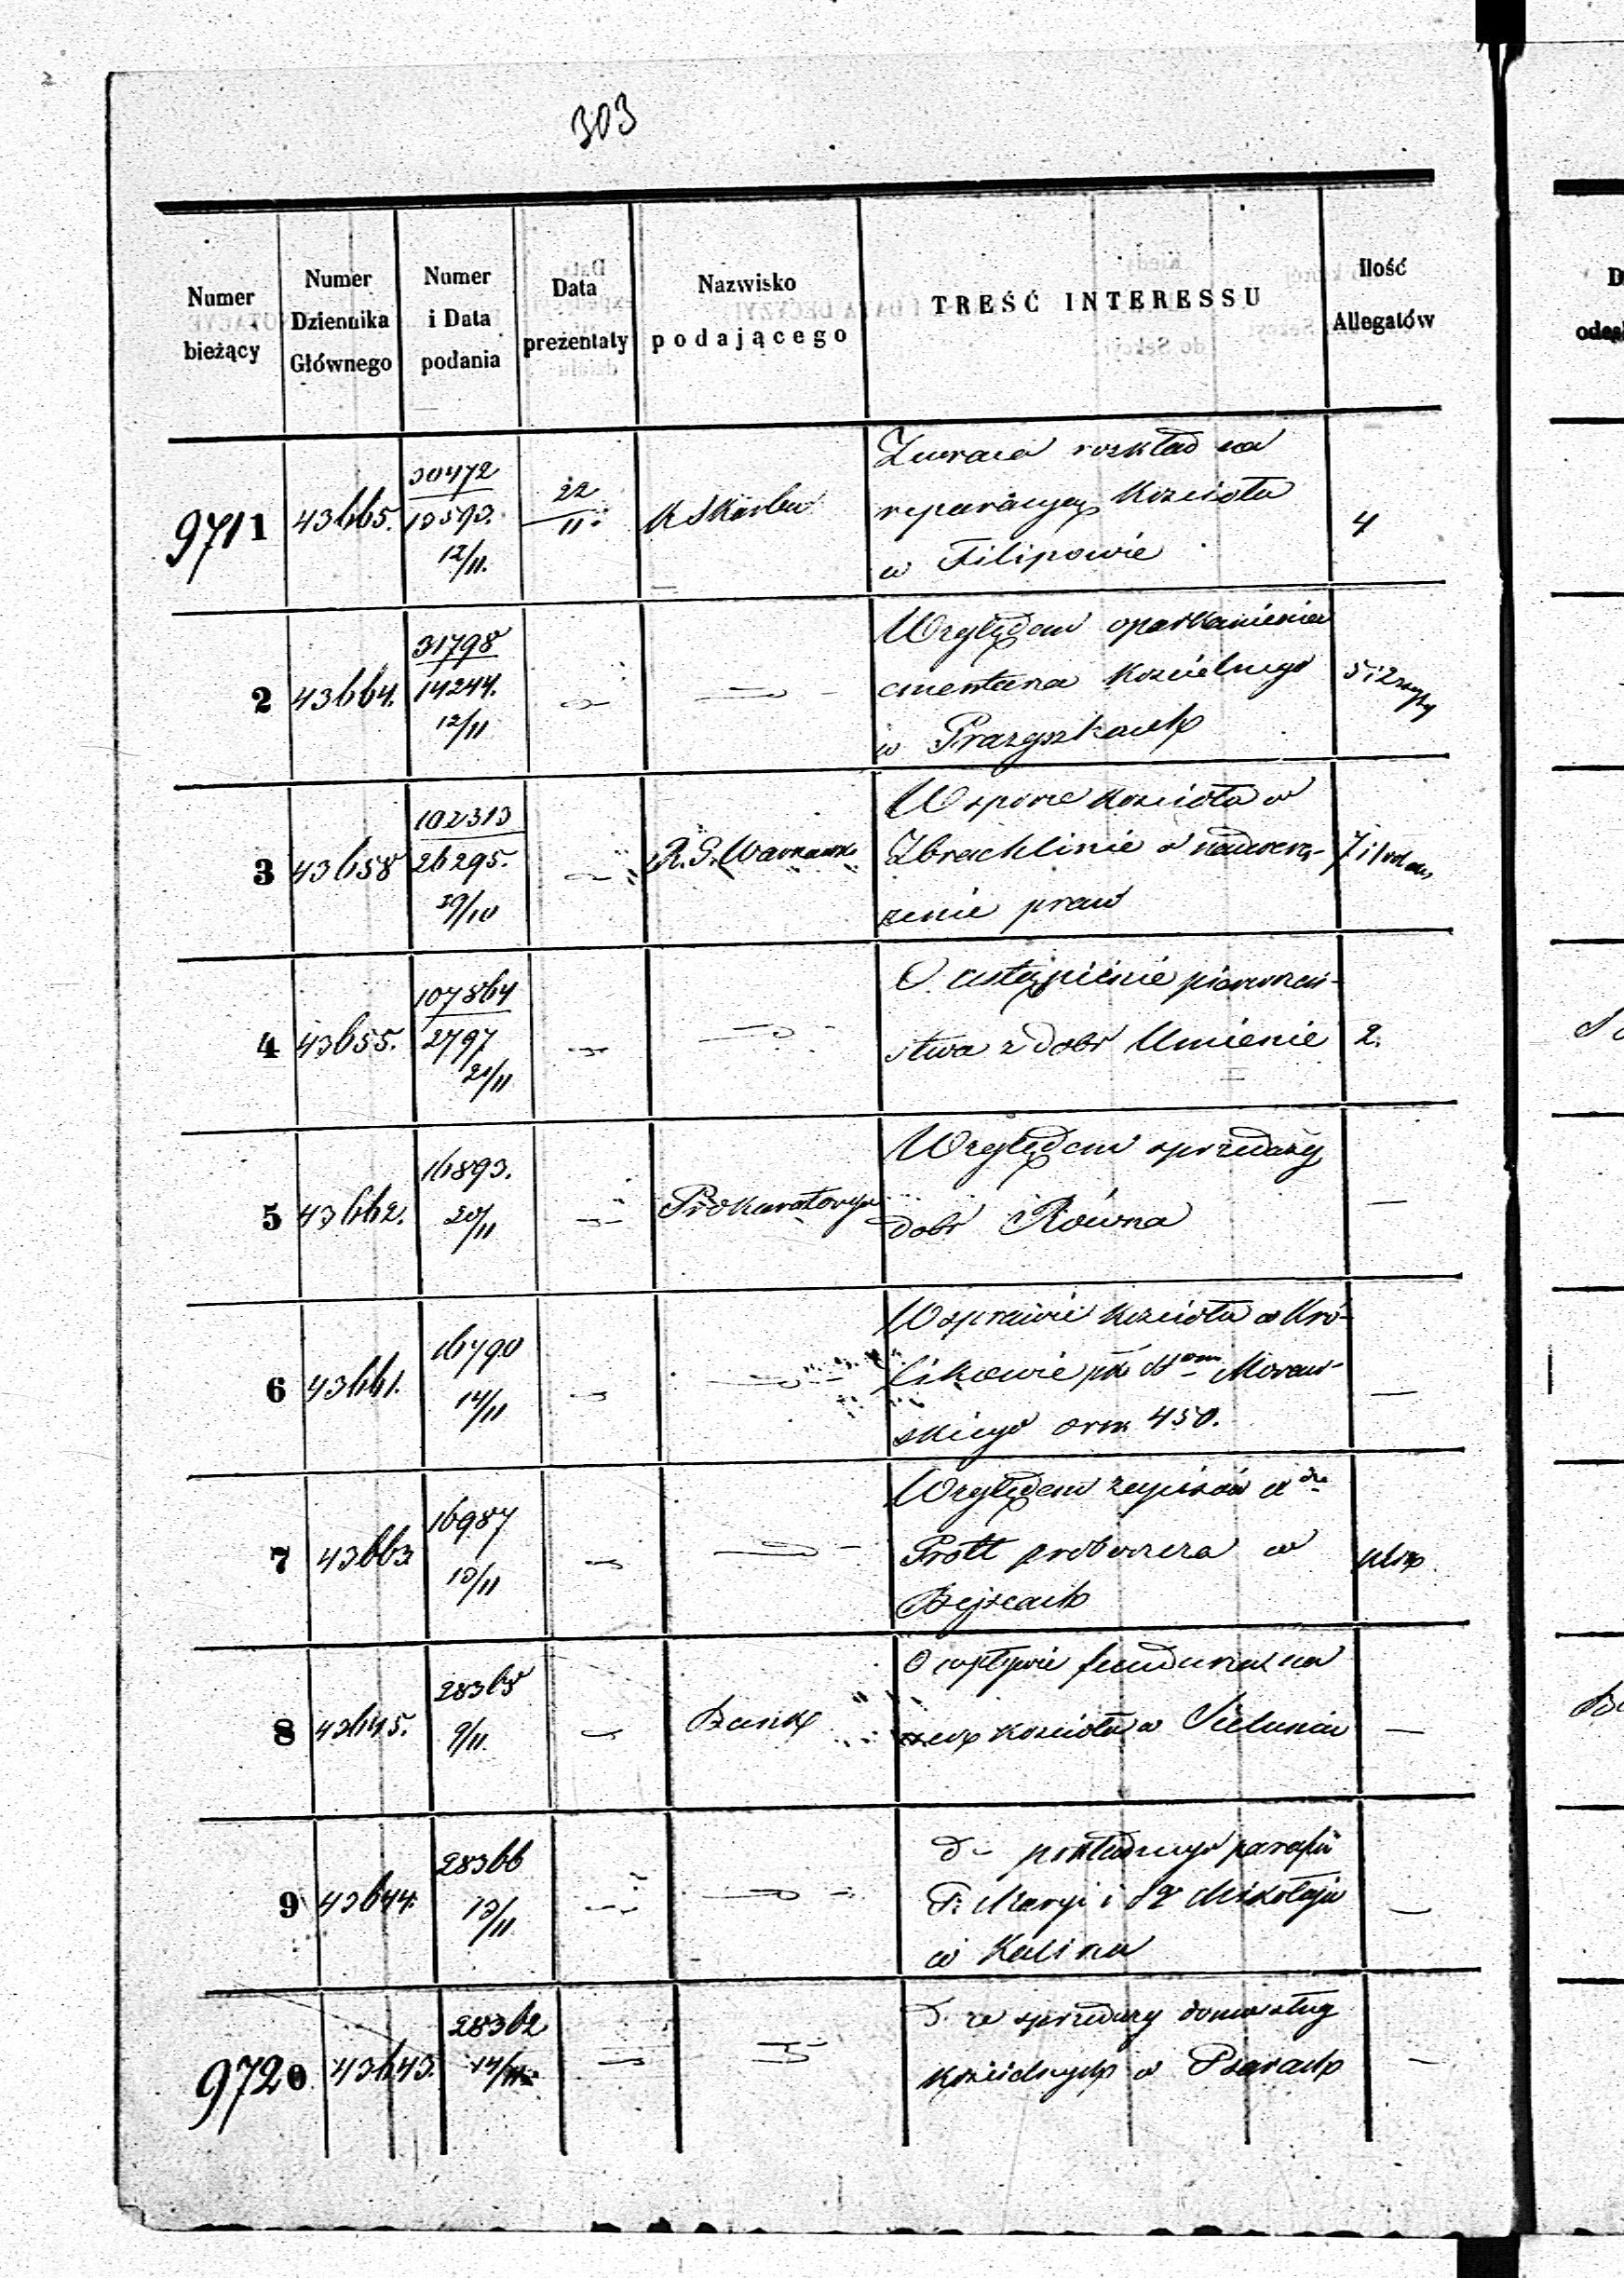 303
Numer bieżący | Numer Dziennika Głównego | Numer i Data podania | Data prezentaty | Nazwisko podającego | TREŚĆ INTERESSU | Ilość Allegatów
9711 | 43665. | 30472 / 13593. 12/11. | 22/11 | K Skarbu | Zwraca rozkład na
reparacyę Kościoła
w Filipowie | 4
2 | 43664. | 31798 / 14244. 12/11 | — | — | Względem oparkanienia
cmentarza Kościelnego
w Prazyszkach | 5 i 2
3 | 43658 | 102313 / 26295. 29/10 | — | R. G. Warszaws | W sporze Kościoła w
Zbrachlinie o nadwerę-
żenie praw | 7 i 1
4 | 43655. | 107864 / 2797 21/11 | — | — | O ustąpienie pierwszeń-
stwa z dobr Umienie | 2.
5 | 43662. | 16893. 20/11 | — | Prokuratorya | Względem sprzedaży
dobr Równa | —
6 | 43661. | 16790 14/11 | — | — | W sprawie Kościoła w Kró-
likowie Moraw-
skiego 450. | —
7 | 43663 | 16987 13/11 | — | — | Względem zapisów
Prott proboszcza w
Bejscach | plik
8 | 43645. | 28368 9/11 | — | Bank | O wpływie funduszu na
rzecz Kościoła w Sieluniu | —
9 | 43644. | 28366 13/11 | — | — | d– pokładnego parafii
P. Maryi i Sgo Mikołaja
w Kaliszu | —
9720 | 43643. | 28362 14/11 | — | — | d. ze sprzedaży domu sług
Kościelnych w Psarach | —